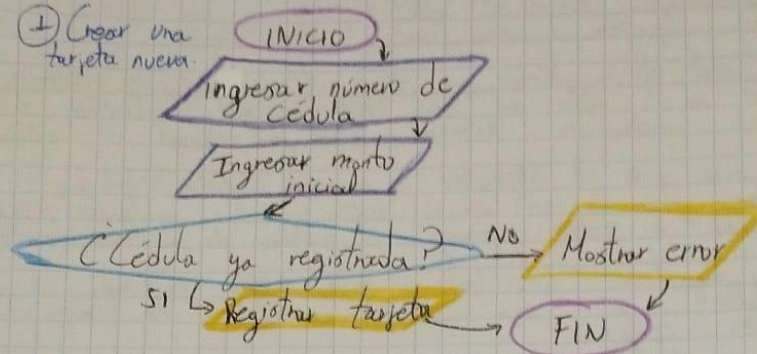 ① Crear una
tarjeta nueva.
INICIO
Ingresar número de
Cédula
Ingresar monto
inicial
¿Cédula ya registrada?
NO
Mostrar error
SI
Registrar tarjeta
FIN